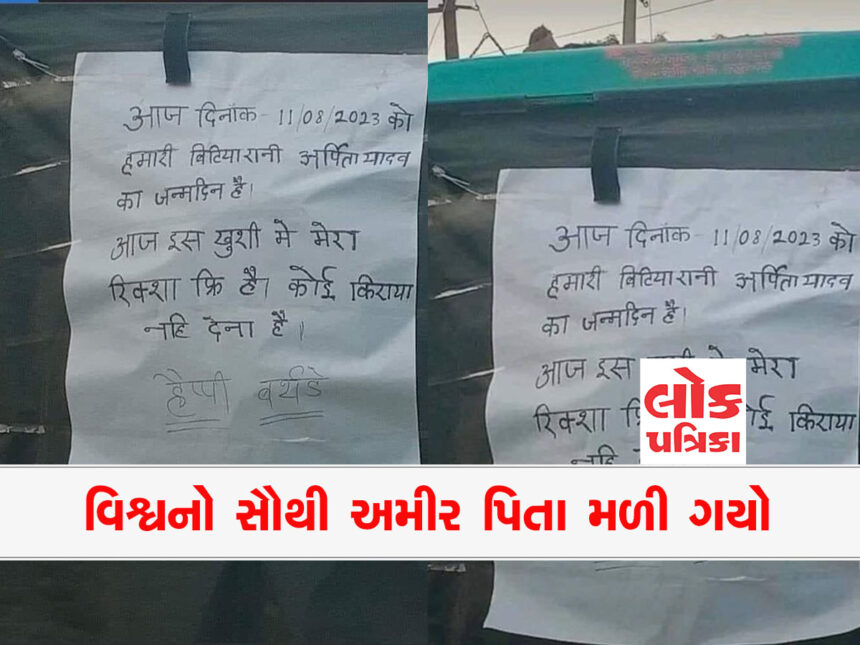 आज दिनांक - 11/08/2023 को
हमारी बिटिया रानी अर्पिता यादव
का जन्मदिन है।
आज इस खुशी मे मेरा
रिक्शा फ्रि है। कोई किराया
नहि देना है।
हैप्पी बर्थडे
आज दिनांक - 11/08/2023 को
हमारी बिटिया रानी अर्पिता यादव
का जन्मदिन है।
आज इस मे मेरा
रिक्शा किराया
नहि
લોક
પત્રિકા
વિશ્વનો સૌથી અમીર પિતા મળી ગયો